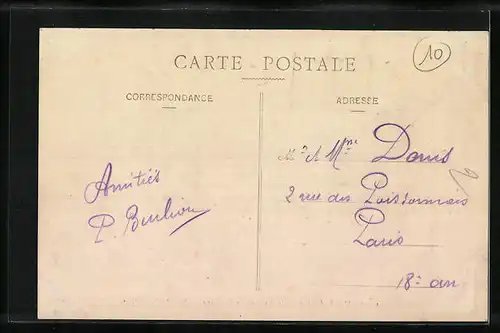 10
CARTE POSTALE
CORRESPONDANCE
ADRESSE
Mr & Mme Denis
Amitiés
2 rue des Poissonniers
P.
Paris
18e arr